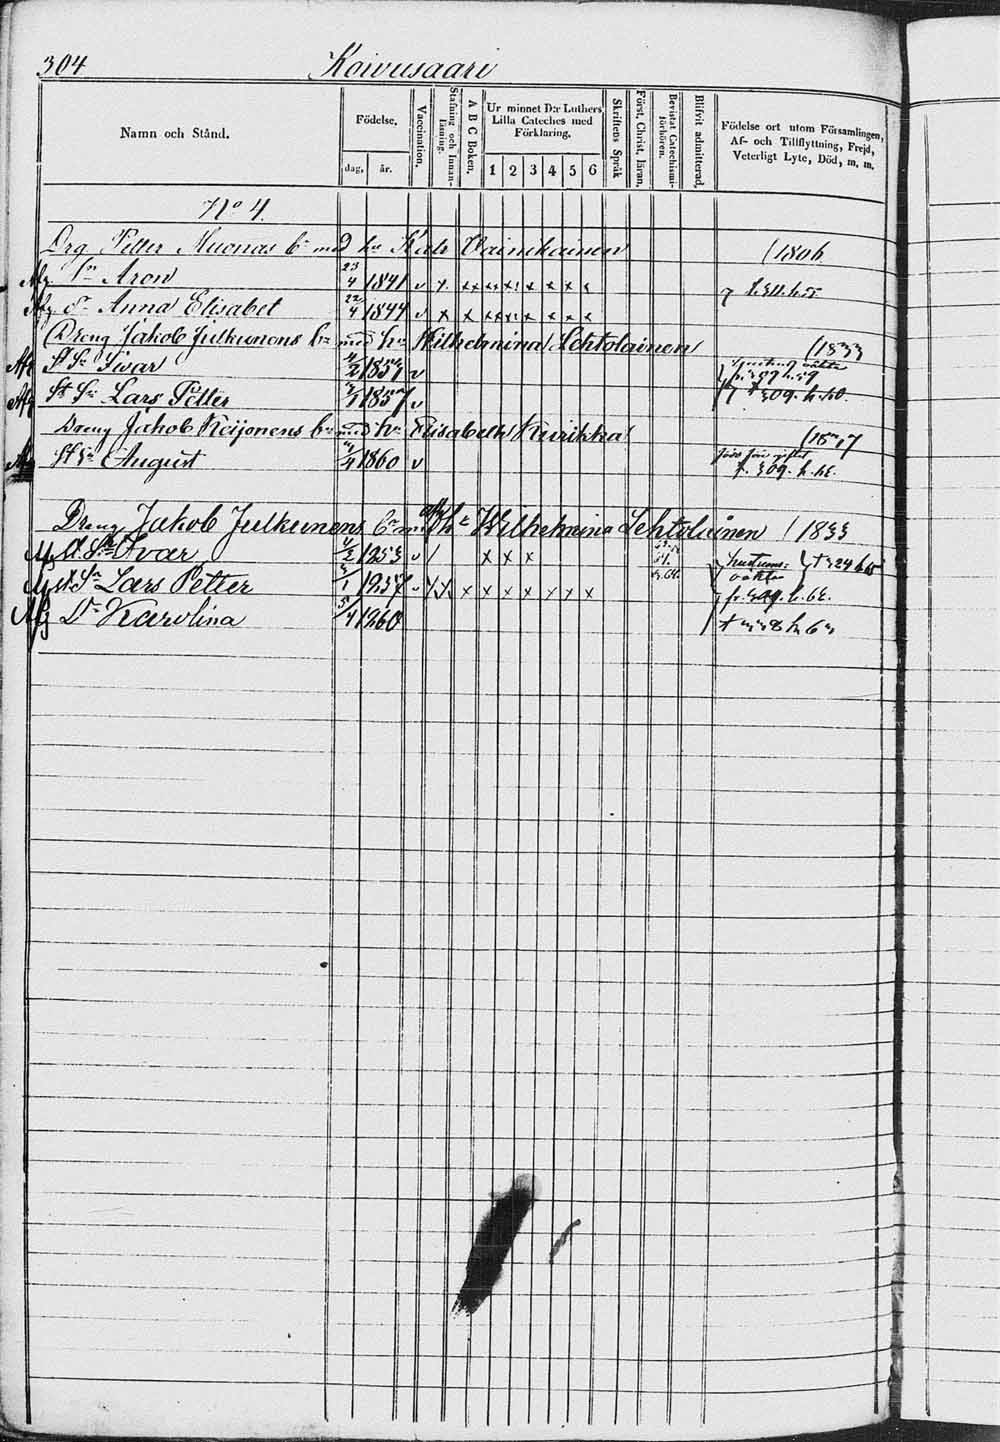 304 Koivusaari
Namn och Stånd.
Födelse,
dag, år.
Vaccination.
Stafning och Innan-läsning.
A B C Boken.
Ur minnet D:r Luthers
Lilla Cateches med
Förklaring.
1 2 3 4 5 6
Skriftens Språk
Först. Christ. läran.
Bevistat Catechismi-förhören.
Blifvit admitterad.
Födelse ort utom Församlingen,
Af- och Tillflyttning, Frejd,
Veterligt Lyte, Död, m. m.
No 4.
Drg Petter Muonas med Vainikainen 1806
Sn Aron 23/4 1841 v x x x x x x x x
Dr Anna Elisabet 22/4 1844 v x x x x x x x x
Dreng Jakob Julkunens bn med hu Wilhelmina Lehtolainen 1833
Sn Ivar v
Sn Lars Petter v
Dreng Jakob Reijonens bn med hu Elisabeth Kurikka
Sn August 1860 v
f. 309. h.
Dreng Jakob Julkunens bn hu Wilhelmina Lehtolainen 1833
Sn Ivar 1853 v x x x
Sn Lars Petter 1857 v x x x x x x x
Dr Karolina 1860